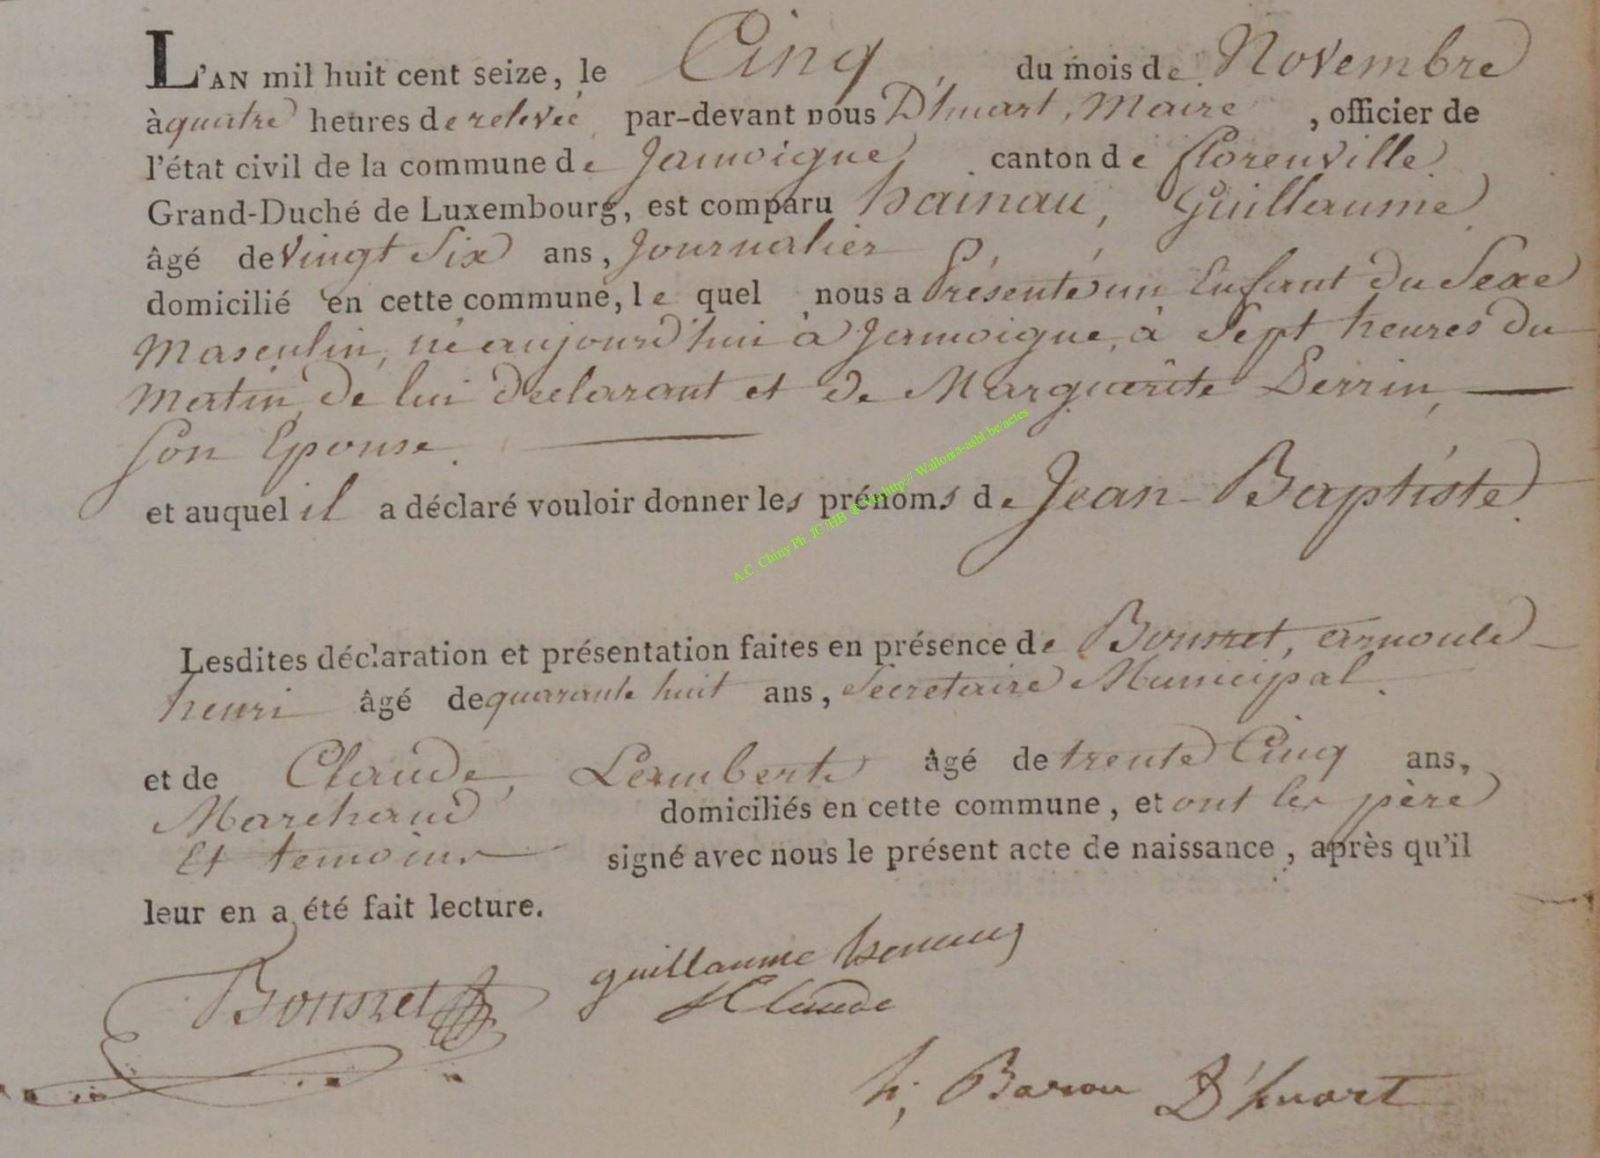 L'AN mil huit cent seize, le Cinq, du mois de Novembre
à quatre heures de relevée par-devant nous D'huart, Maire, officier de
l'état civil de la commune de Jamoigne, canton de florenville
Grand-Duché de Luxembourg, est comparu hainau, Guillaume
âgé de Vingt Six ans, Journalier
domicilié en cette commune, le quel nous a Présenté un Enfant du Sexe
Masculin, né aujourd'hui à Jamoigne, à Sept heures du
Matin, de lui declarant et de Marguerite Perrin,
Son Epouse.
et auquel il a déclaré vouloir donner les prénoms de Jean-Baptiste.
A.C. Chiny Ph JC HB http:// Wallonia-asbl.be/actes
Lesdites déclaration et présentation faites en présence de Bousret, arnould
henri âgé de quarante huit ans, Secretaire Municipal.
et de Claude, Lambert âgé de trente Cinq ans,
Marchand domiciliés en cette commune, et ont les père
Et temoins signé avec nous le présent acte de naissance, après qu'il
leur en a été fait lecture.
Bousret guillaume
Claude
h; Baron D'huart